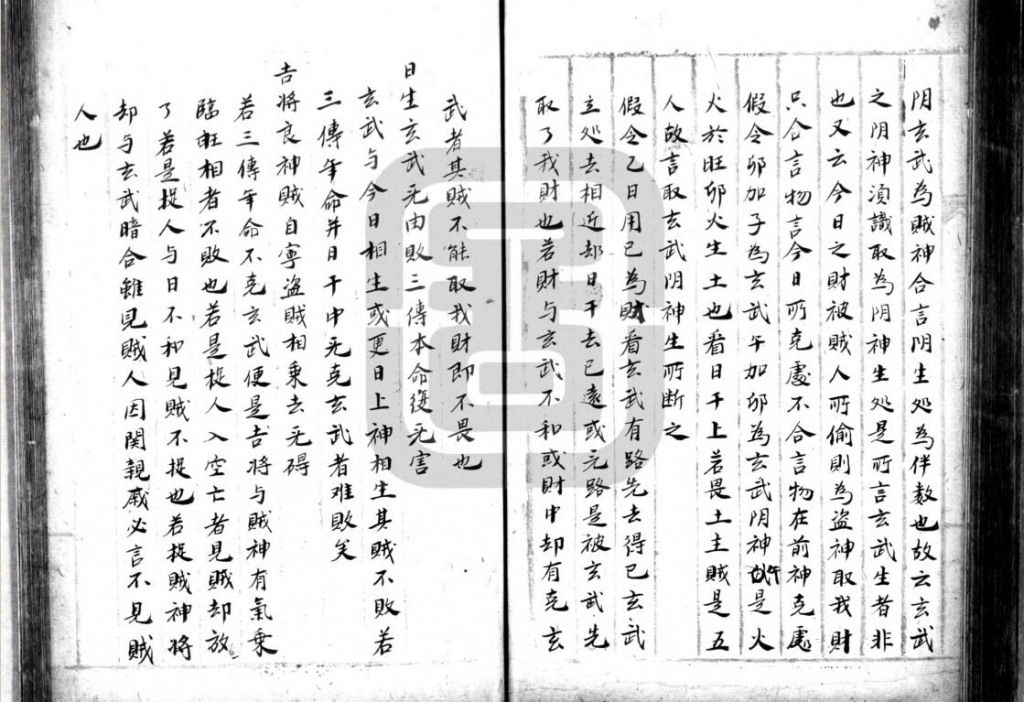 阴玄武為賊神合言阴生处為伴数也故云玄武
之阴神湏識取為阴神生処是所言玄武生者非
也又云今日之財被賊人所偷則為盗神取我財
只合言物言今日所克處不合言物在前神克處
假令卯加子為玄武午加卯為玄武阴神午是火
火於旺卯火生土也看日干上若畏土主賊是五
人故言取玄武阴神生所断之
假令乙日用巳為財看玄武有路先去得巳玄武
立処去相近却日干去已遠或无路是被玄武先
取了我財也若財与玄武不和或財中却有克玄
武者其賊不能取我財即不畏也
日生玄武无由敗三傳本命復无害
玄武与今日相生或更日上神相生其賊不敗若
三傳年命并日干中无克玄武者难敗矣
吉将良神賊自寧盗賊相乗去无碍
若三傳年命不克玄武便是吉将与賊神有氣乗
臨旺相者不敗也若是捉人入空亡者見賊却放
了若是捉人与日不和見賊不捉也若捉賊神将
却与玄武暗合雖見賊人因関親戚必言不見賊
人也